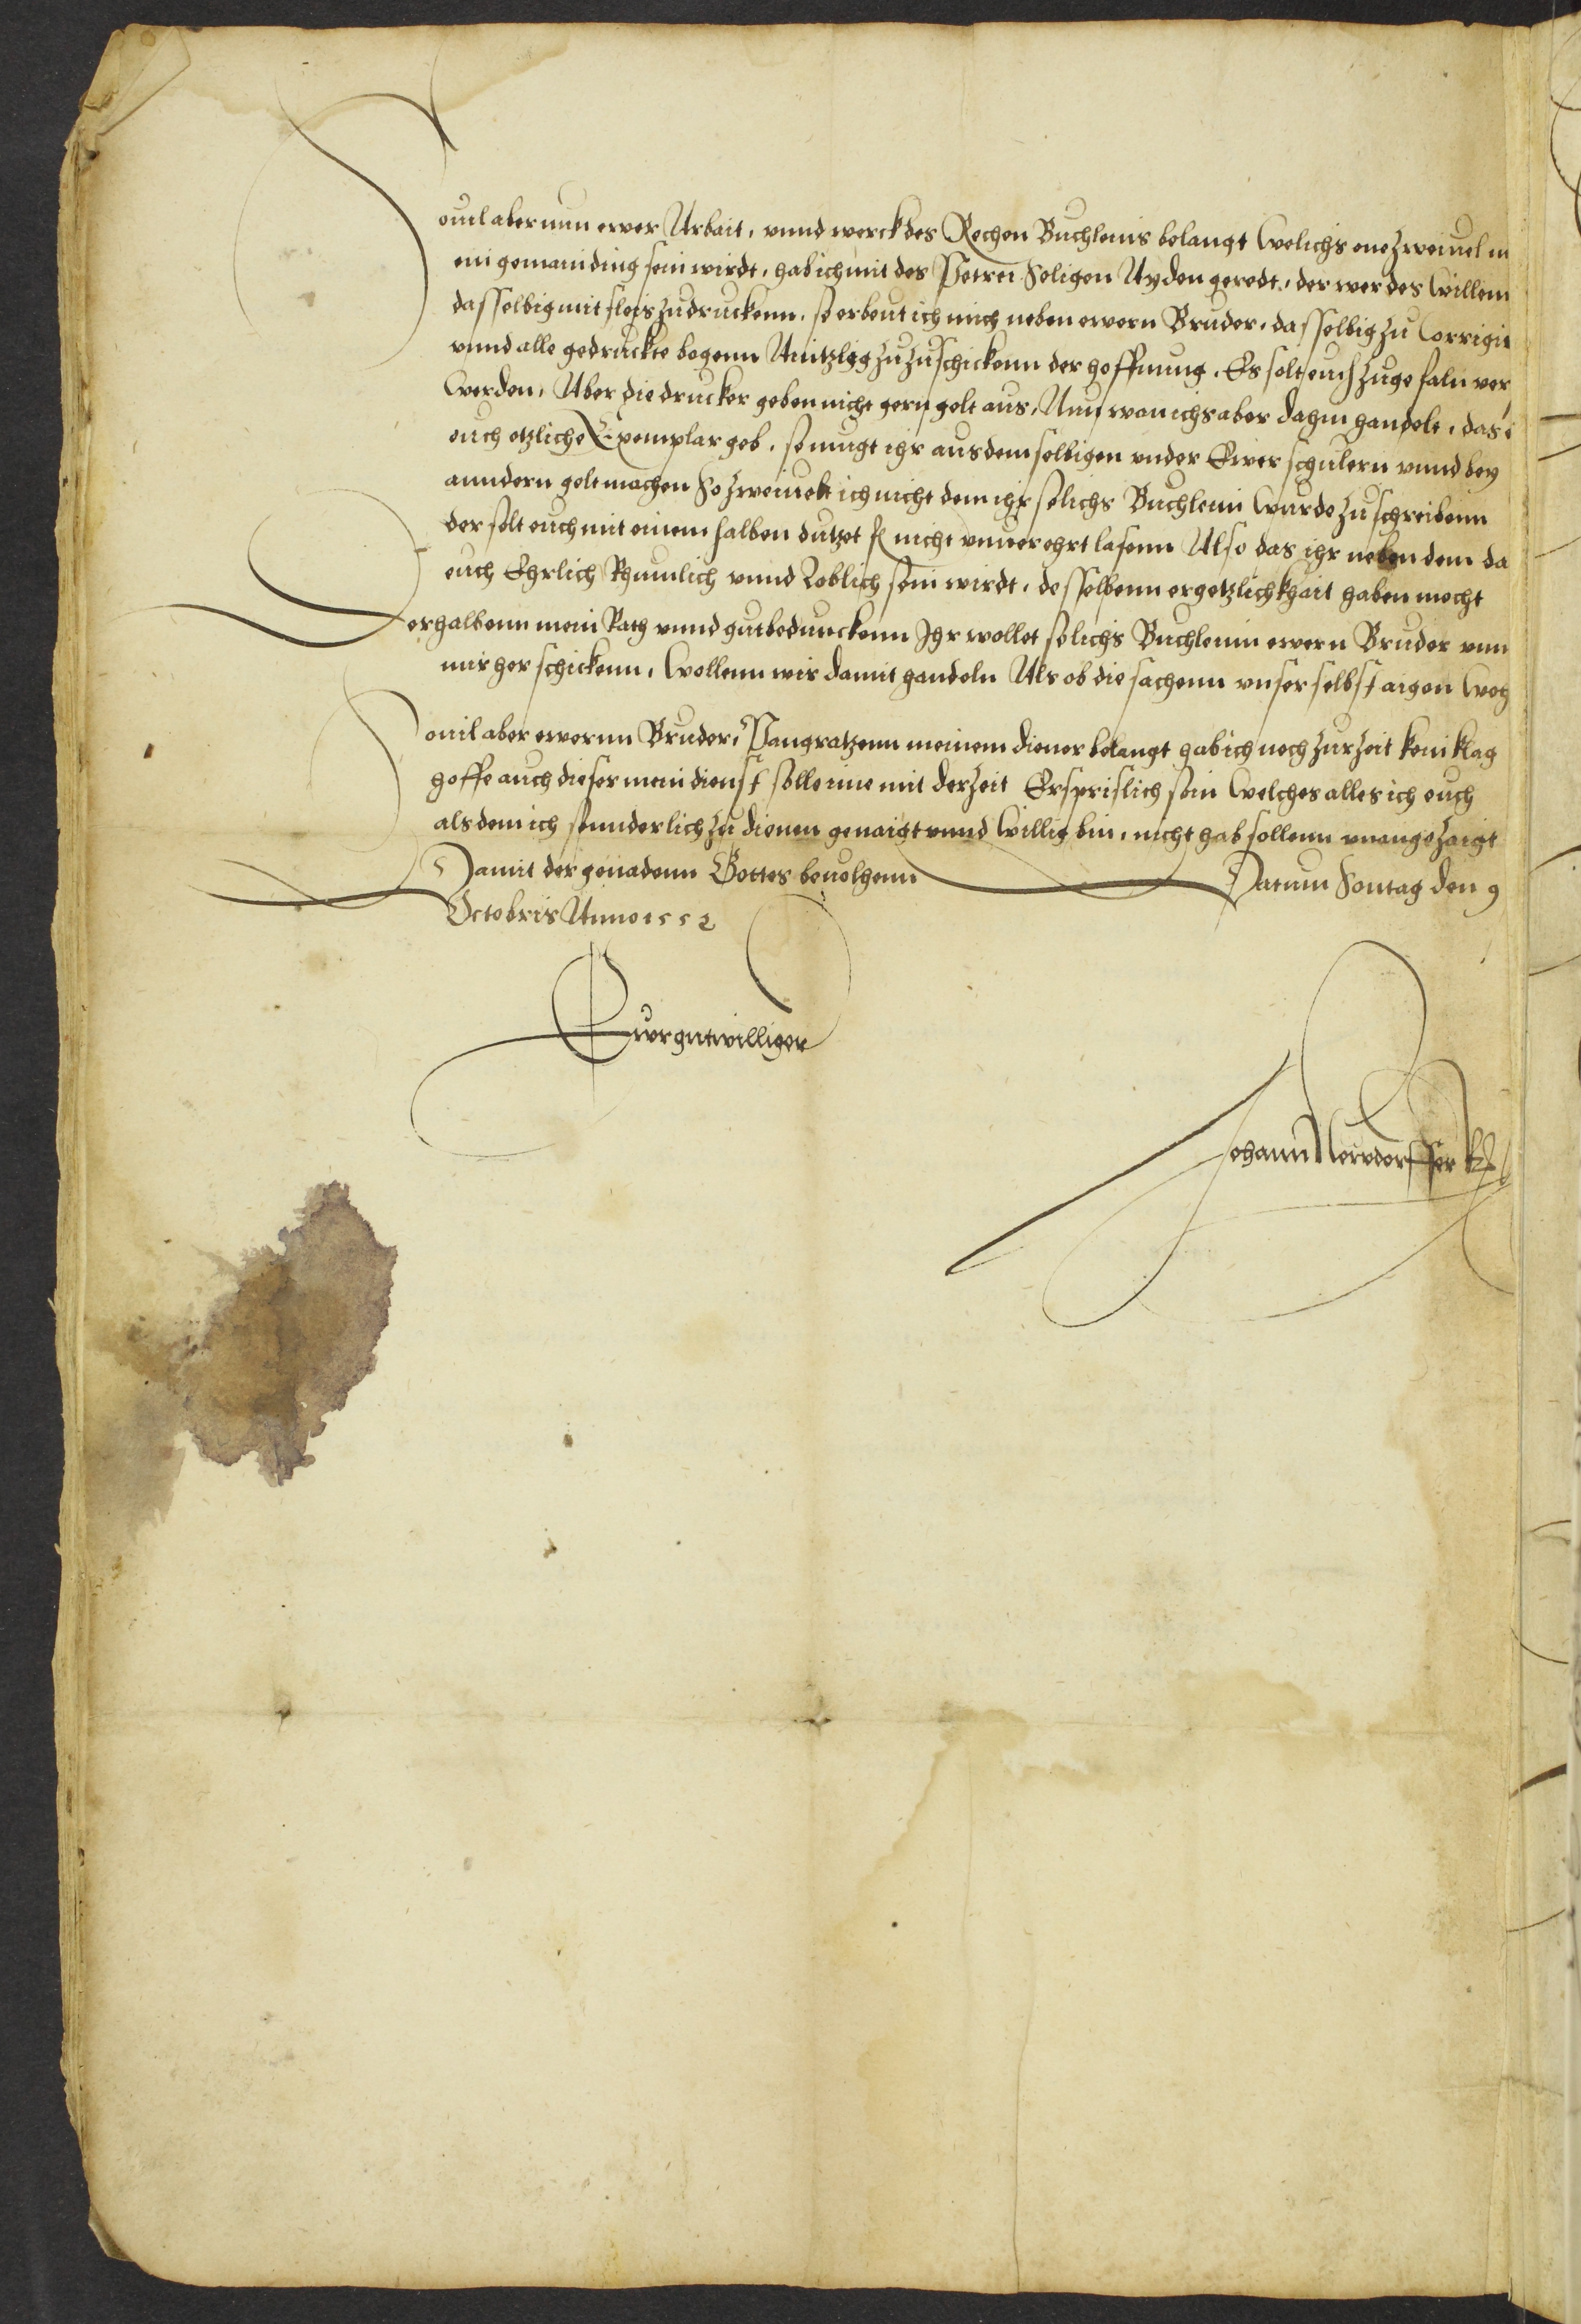 Souil aber nun ewer Arbait, vnnd werck des Rechen Buchleins belangt Welichs one zweiuel in
ein gemain ding sein wirdt, hab ich mit des Petrei Seligen Ayden geredt, der wer des Willenn
dasselbig mit fleis zu druckenn, so erbeut ich mich neben ewern Bruder, dasselbig zu Corrigirn
vnnd alle gedruckte bogenn zu zuschickenn der hoffnung, Es solt euch zuge faln
Werden, Aber die drucker geben nicht gern gelt aus, Nun wan ichs aber dahin handelt, das
euch etzliche Exemplar geb, so mugt ihr aus demselbigen vnder Ewer schulern vnnd bey
anndern gelt machen So zweiuelt ich nicht dem ihr solichs Buchlein Wurde zuschreibenn
der solt euch mit einem halben dutzet fl nicht vnuerehrt lasenn Also das ihr neben dem da
euch Ehrlich Rhumlich vnnd Loblich sein wirdt, desselbenn ergetzlichkhait haben mecht
Derhalbenn mein Rath vnnd gutbeduncken Ihr wollet solichs Buchlenn ewern Bruder vnn
mir her schickenn, Wollenn wir damit handeln Als ob die sachenn vnser selbst aigen
Souil aber ewernn Bruder, Pangratzenn meinem diener belangt hab ich noch zur zeit kein klag
hoffe auch dieser mein dienst solle ime mit der zeit Ersprislich sein Welches alles ich euch
als dem ich sunderlich zu dienen genaigt vnnd Willig bin, nicht hab sollenn vnangezaigt
Damit der genadenn Gottes beuolhenn Datum Sontag den 9
Octobris Anno 1552
Ewr gutwilliger
Johann Newdorffer